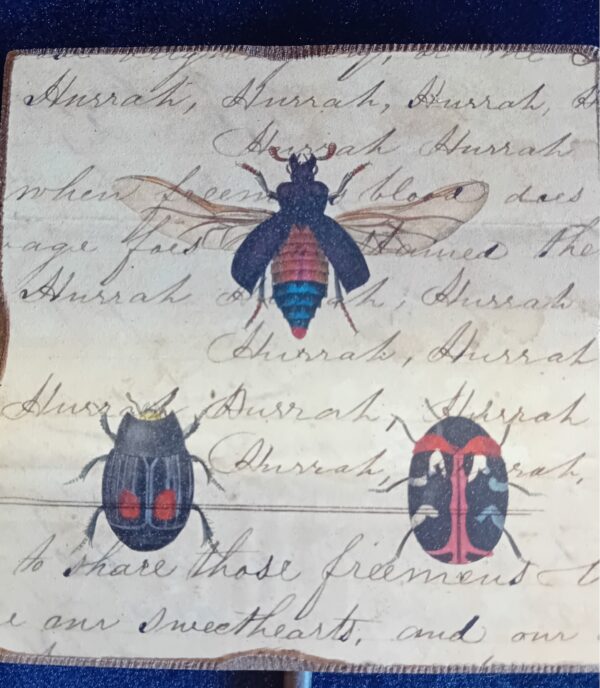 or the
Hurrah, Hurrah, Hurrah,
Hurrah Hurrah
when freemen's blood does
age foes stained the
Hurrah Hurrah, Hurrah
Hurrah, Hurrah
Hurrah Hurrah, Hurrah
Hurrah, Hurrah,
to share those freemens
our sweethearts, and our